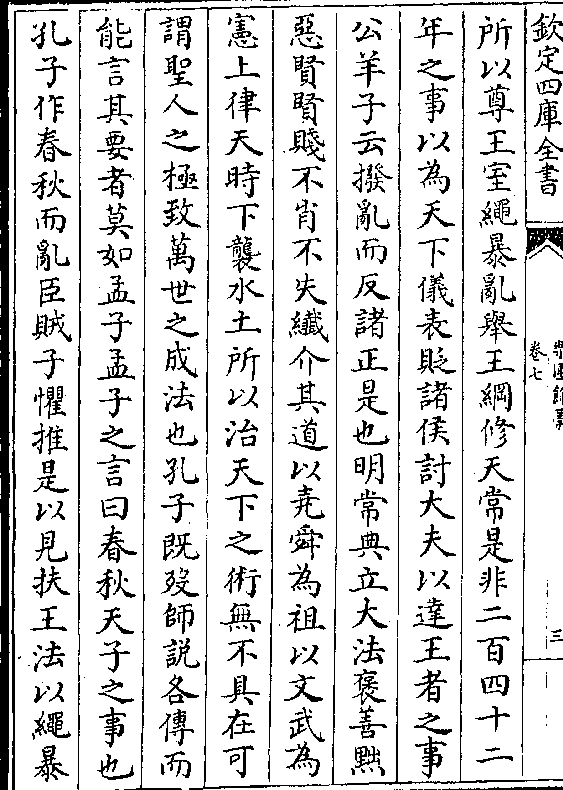 欽定四庫全書
卷七
三
所以尊王室繩暴亂舉王綱修天常是非二百四十二
年之事以為天下儀表貶諸侯討大夫以達王者之事
公羊子云撥亂而反諸正是也明常典立大法褒善黜
惡賢賢賤不肖不失纎介其道以堯舜為祖以文武為
憲上律天時下襲水土所以治天下之術無不具在可
謂聖人之極致萬世之成法也孔子既歿師説各傳而
能言其要者莫如孟子孟子之言曰春秋天子之事也
孔子作春秋而亂臣賊子懼推是以見扶王法以繩暴